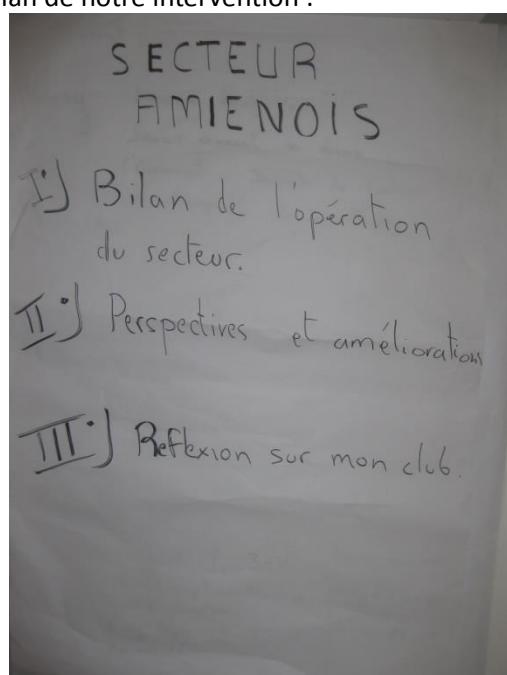 lan de notre intervention :
SECTEUR
AMIENOIS
I°) Bilan de l'opération
du secteur.
II°) Perspectives et améliorations
III°) Reflexion sur mon club.